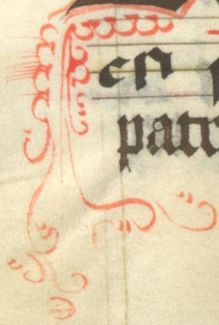 est
patr